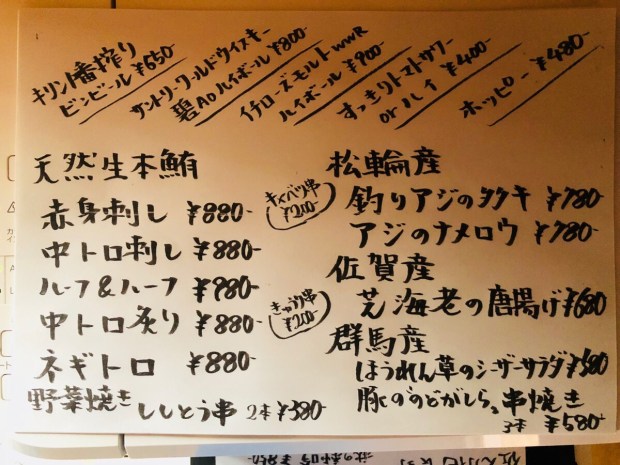 キリン一番搾り
ビンビール ¥650-
サントリーワールドウイスキー
碧Aoハイボール ¥800-
イチローズモルトWWR
ハイボール ¥900-
すっきりトマトサワー
orハイ ¥400-
ホッピー ¥480-
天然生本鮪
赤身刺し ¥880-
中トロ刺し ¥880-
ハーフ&ハーフ ¥980-
中トロ炙り ¥880-
ネギトロ ¥880-
野菜焼き ししとう串 2本 ¥380-
キャベツ串
¥200-
きゅうり串
¥200-
松輪産
釣りアジのタタキ ¥780-
アジのナメロウ ¥780-
佐賀産
芝海老の唐揚げ ¥680
群馬産
ほうれん草のシーザーサラダ ¥580
豚ののどがしら、串焼き
3本 ¥580-